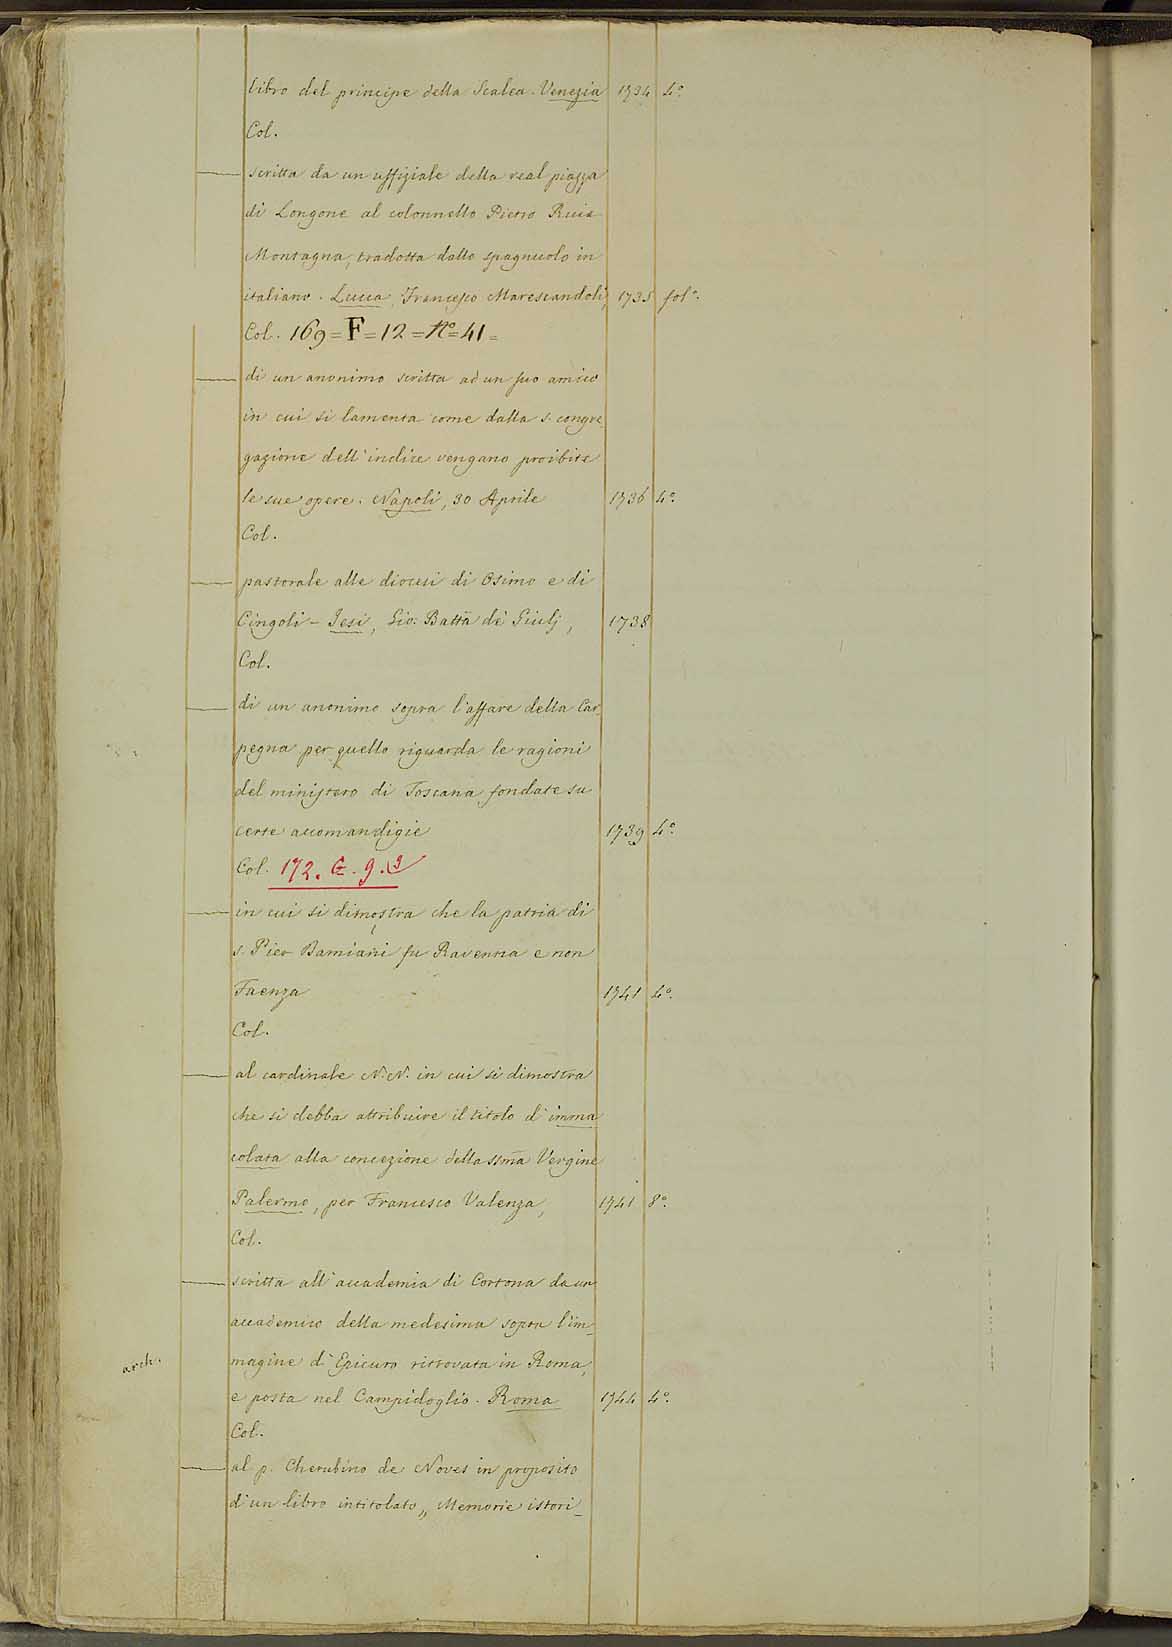 libro del principe della Scalea. Venezia 1734 4º
Col.
— scritta da un uffiziale della real piazza
di Longone al colonnello Pietro Ruis
Montagna, tradotta dallo spagnuolo in
italiano. Lucca, Francesco Marescandoli, 1735 folº.
Col. 169=F=12=Nº=41=
— di un anonimo scritta ad un suo amico
in cui si lamenta come dalla s. congre_
gazione dell'indice vengano proibite
le sue opere. Napoli, 30 Aprile 1736 4º.
Col.
— pastorale alle diocesi di Osimo e di
Cingoli – Jesi, Gio: Batta de Giulj, 1738
Col.
— di un anonimo sopra l'affare della Car_
pegna per quello riguarda le ragioni
del ministero di Toscana fondate su
certe accomandigie 1739 4º.
Col. 172. G. 9.
— in cui si dimostra che la patria di
s. Pier Damiani fu Ravenna e non
Faenza 1741 4º.
Col.
— al cardinale N. N. in cui si dimostra
che si debba attribuire il titolo d'imma
colata alla concezione della ssma Vergine
Palermo, per Francesco Valenza, 1741 8º.
Col.
— scritta all'accademia di Cortona da un
accademico della medesima sopra l'im_
arch. magine d'Epicuro ritrovata in Roma,
e posta nel Campidoglio. Roma 1744 4º.
Col.
— al p. Cherubino de Noves in proposito
d'un libro intitolato „ Memorie istori_